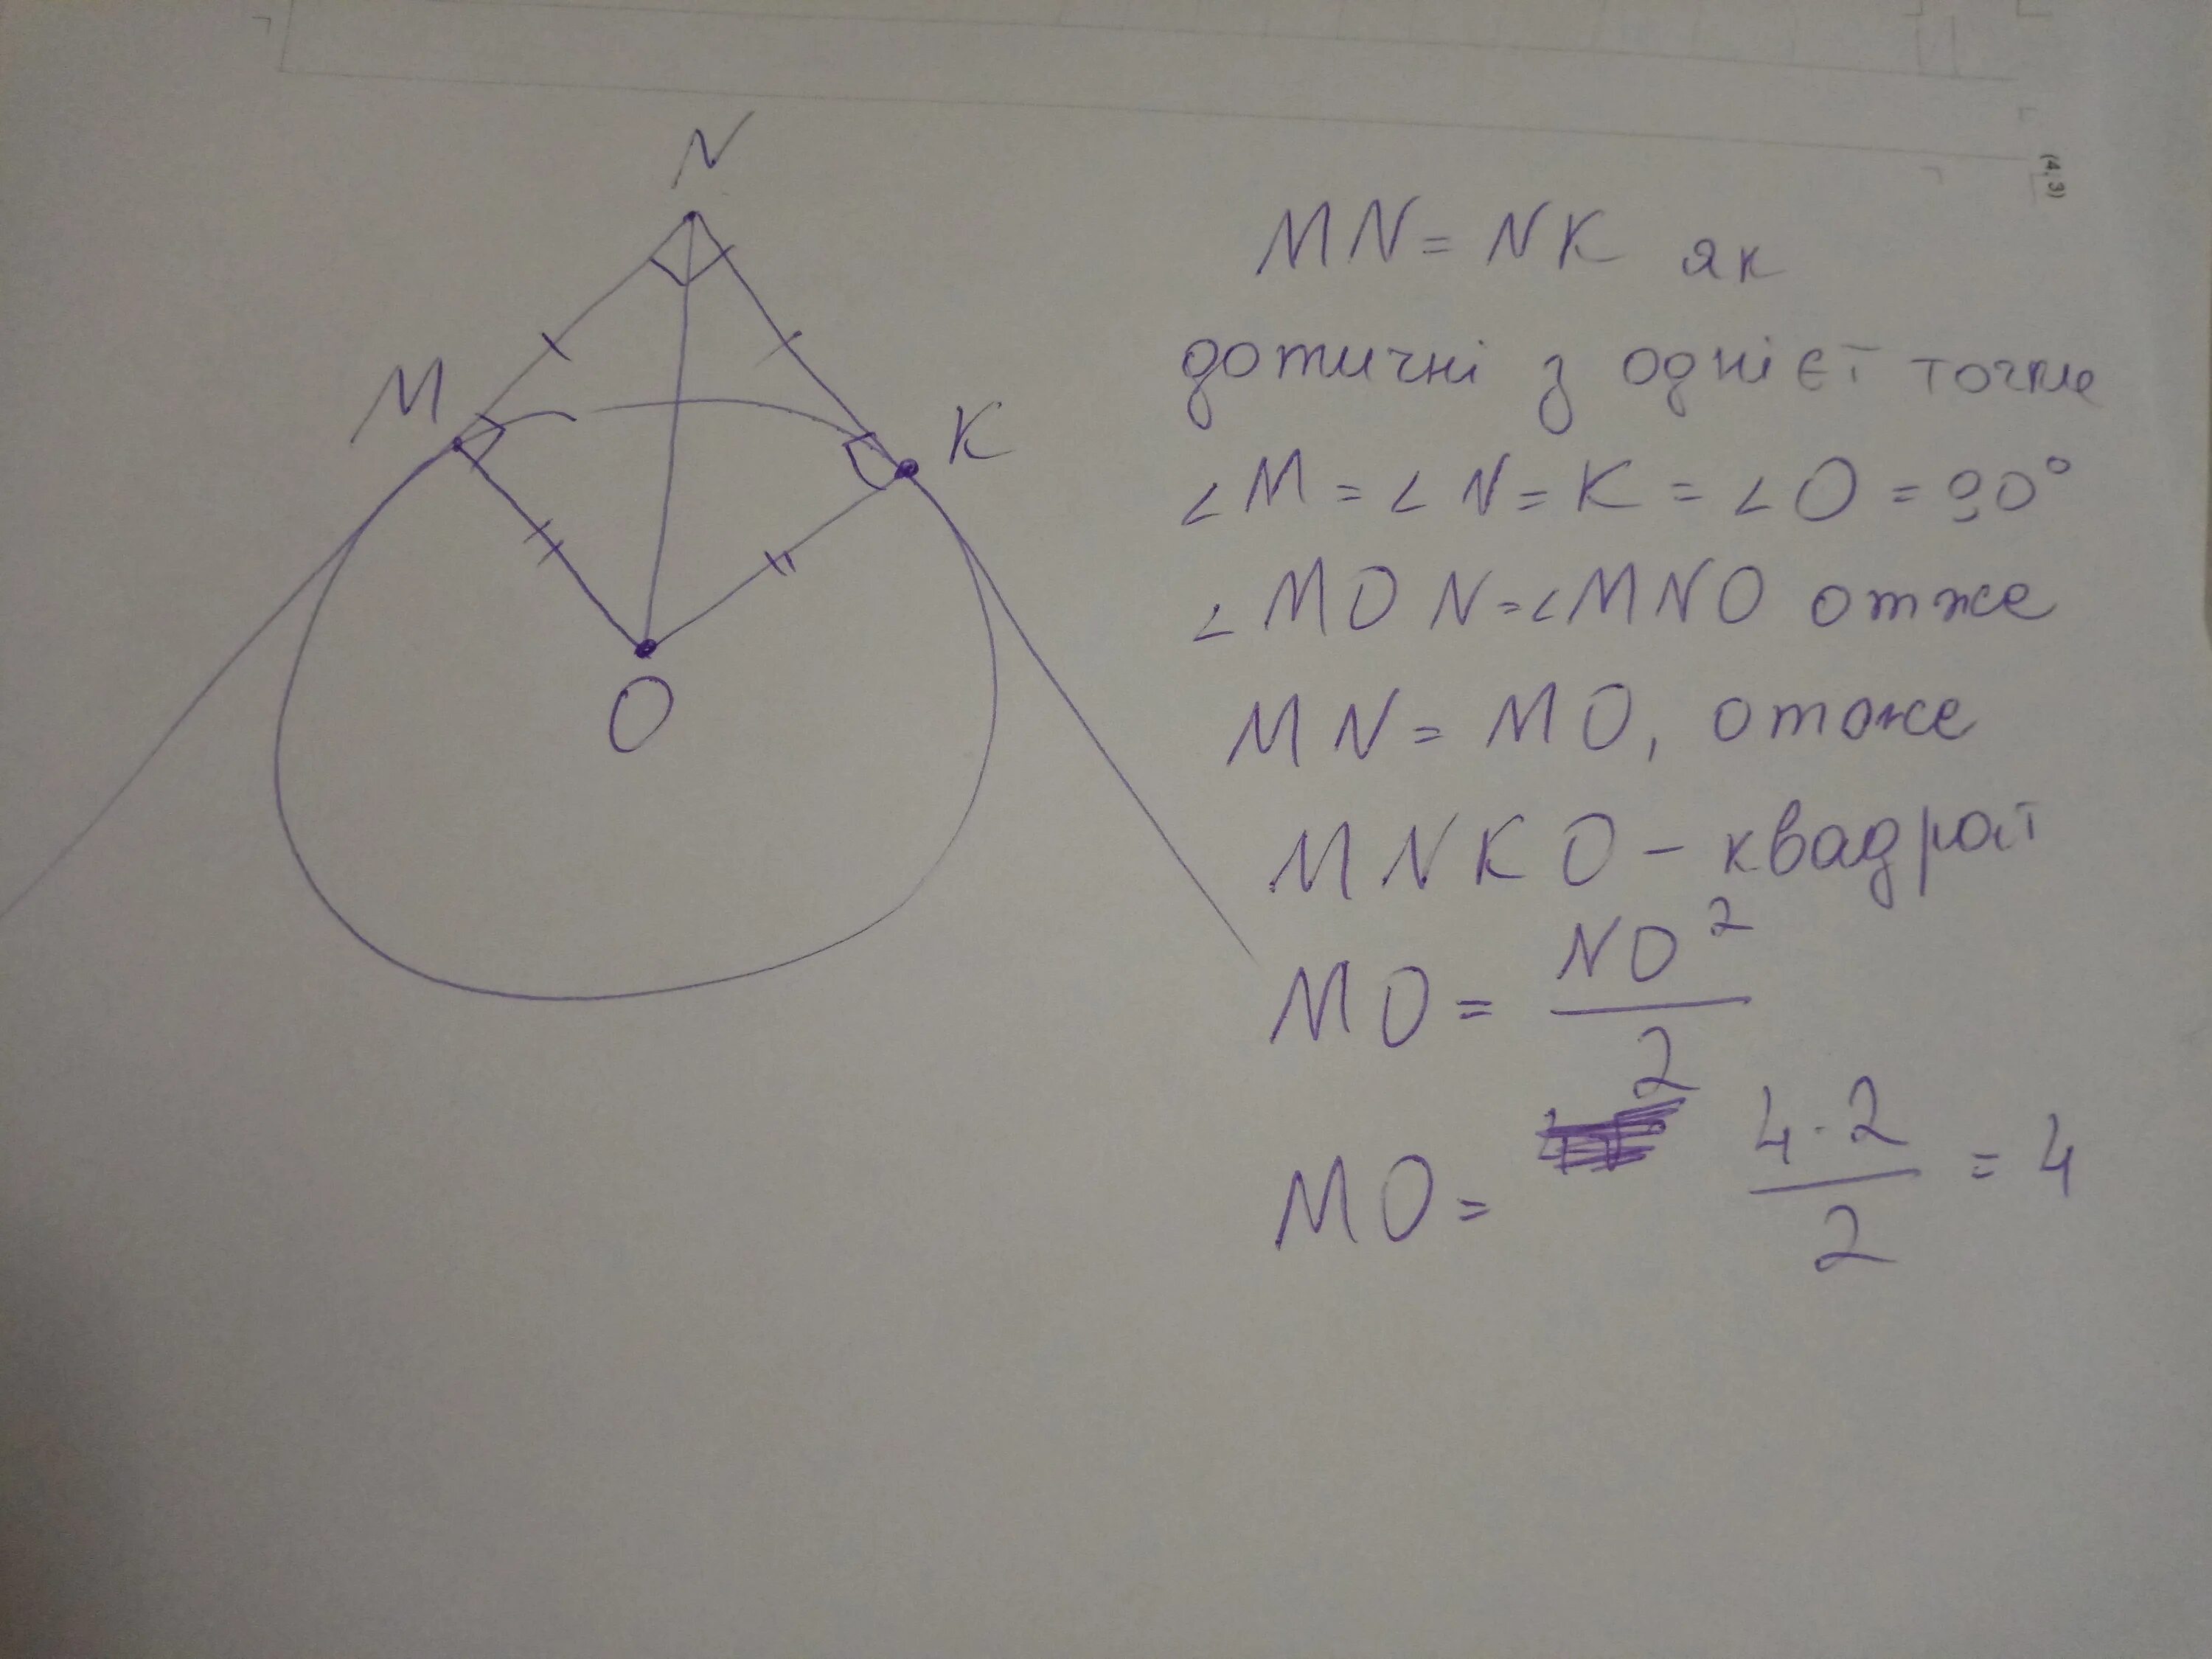 N
M
K
O
(4; 3)
MN = NK як
дотичні з однієї точки
∠M = ∠N = K = ∠O = 90°
∠MON = ∠MNO отже
MN = MO, отже
MNKO – квадрат
MO = NO² / 2
MO = 4 · 2 / 2 = 4